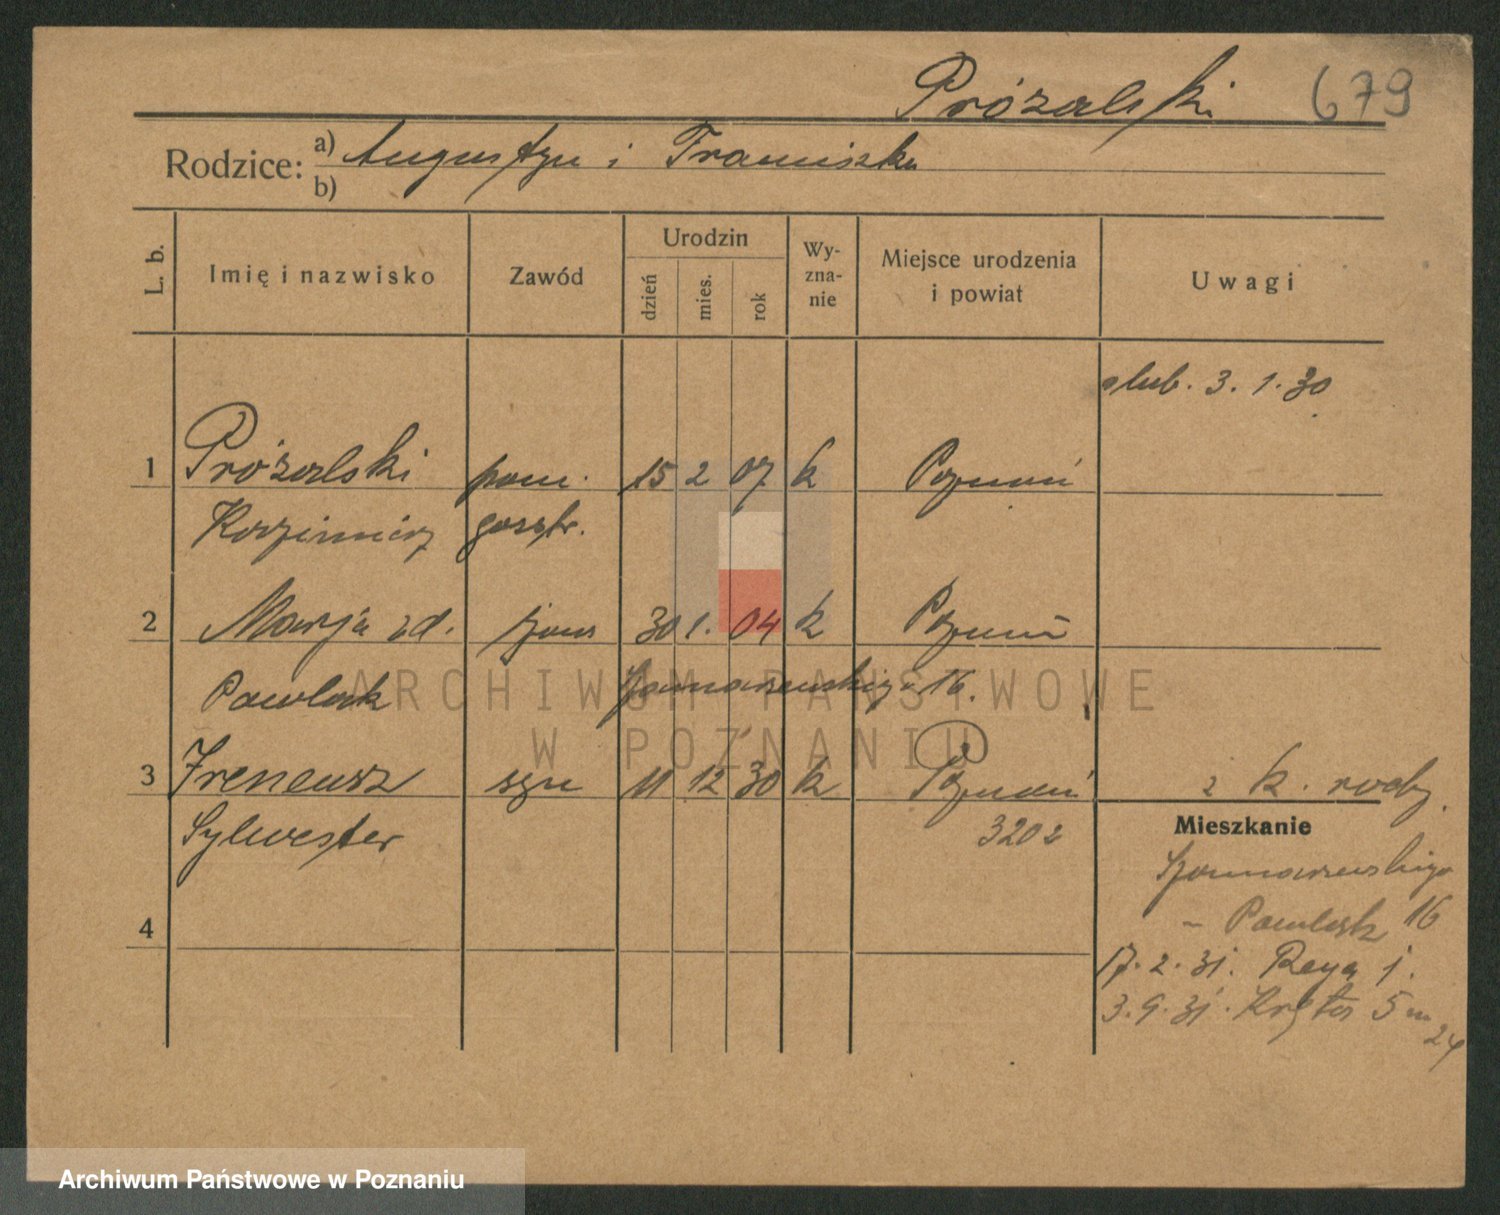 Prózalski 679
Rodzice: a) Augustyn i Franciszka
b)
L. b.
Imię i nazwisko
Zawód
Urodzin
dzień mies. rok
Wy-
zna-
nie
Miejsce urodzenia
i powiat
Uwagi
slub. 3. 1. 30
1 Prózalski pom. 15 2 07 k Poznań
Kazimierz gosp.
2 Marja zd. żona 30 1. 04 k Poznań
Pawlak 16.
ARCHIWUM PAŃSTWOWE
W POZNANIU
3 Ireneusz syn 11 12 30 k Poznań z k. rodz.
Sylwester 3202
Mieszkanie
4
- Pawlak 16
17. 2. 31. Reya 1.
3. 9. 31. Kręta 5 m
24
Archiwum Państwowe w Poznaniu